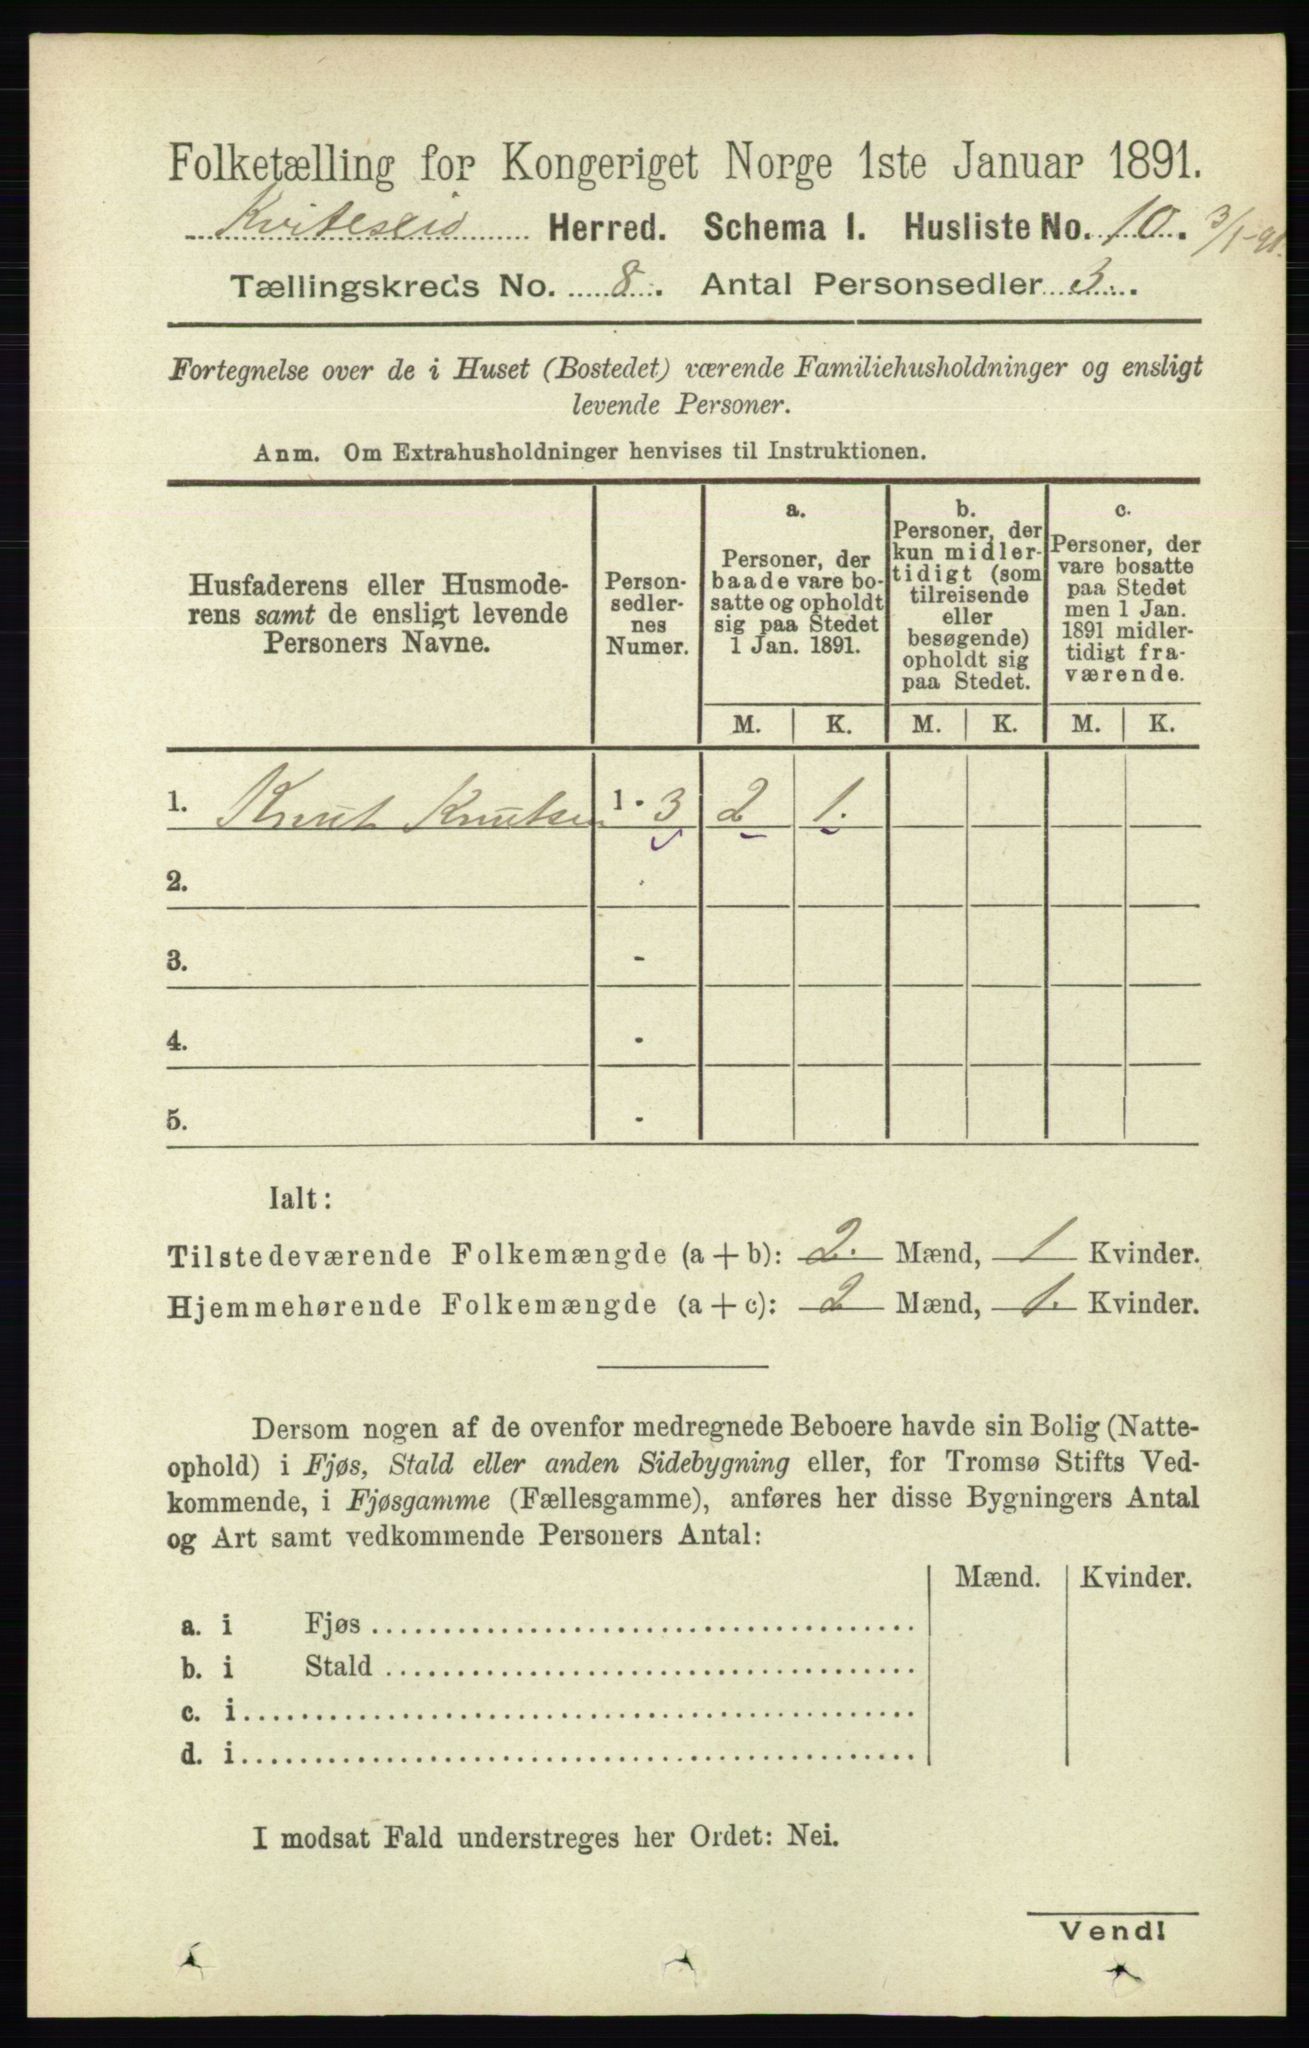 Folketælling for Kongeriget Norge 1ste Januar 1891.
Kviteseid Herred. Schema I. Husliste No. 10. 3/1-91.
Tællingskreds No. 8. Antal Personsedler 3.
Fortegnelse over de i Huset (Bostedet) værende Familiehusholdninger og ensligt
levende Personer.
Anm. Om Extrahusholdninger henvises til Instruktionen.
Husfaderens eller Husmode-
rens samt de ensligt levende
Personers Navne.
Person-
sedler-
nes
Numer.
a.
Personer, der
baade vare bo-
satte og opholdt
sig paa Stedet
1 Jan. 1891.
b.
Personer, der
kun midler-
tidigt (som
tilreisende
eller
besøgende)
opholdt sig
paa Stedet.
c.
Personer, der
vare bosatte
paa Stedet
men 1 Jan.
1891 midler-
tidigt fra-
værende.
M. K. M. K. M. K.
1. Knut Knutsen 1 - 3 2 1.
2. -
3. -
4. -
5. -
Ialt:
Tilstedeværende Folkemængde (a + b): 2. Mænd, 1 Kvinder.
Hjemmehørende Folkemængde (a + c): 2 Mænd, 1. Kvinder.
Dersom nogen af de ovenfor medregnede Beboere havde sin Bolig (Natte-
ophold) i Fjøs, Stald eller anden Sidebygning eller, for Tromsø Stifts Ved-
kommende, i Fjøsgamme (Fællesgamme), anføres her disse Bygningers Antal
og Art samt vedkommende Personers Antal:
Mænd. Kvinder.
a. i Fjøs
b. i Stald
c. i
d. i
I modsat Fald understreges her Ordet: Nei.
Vend!